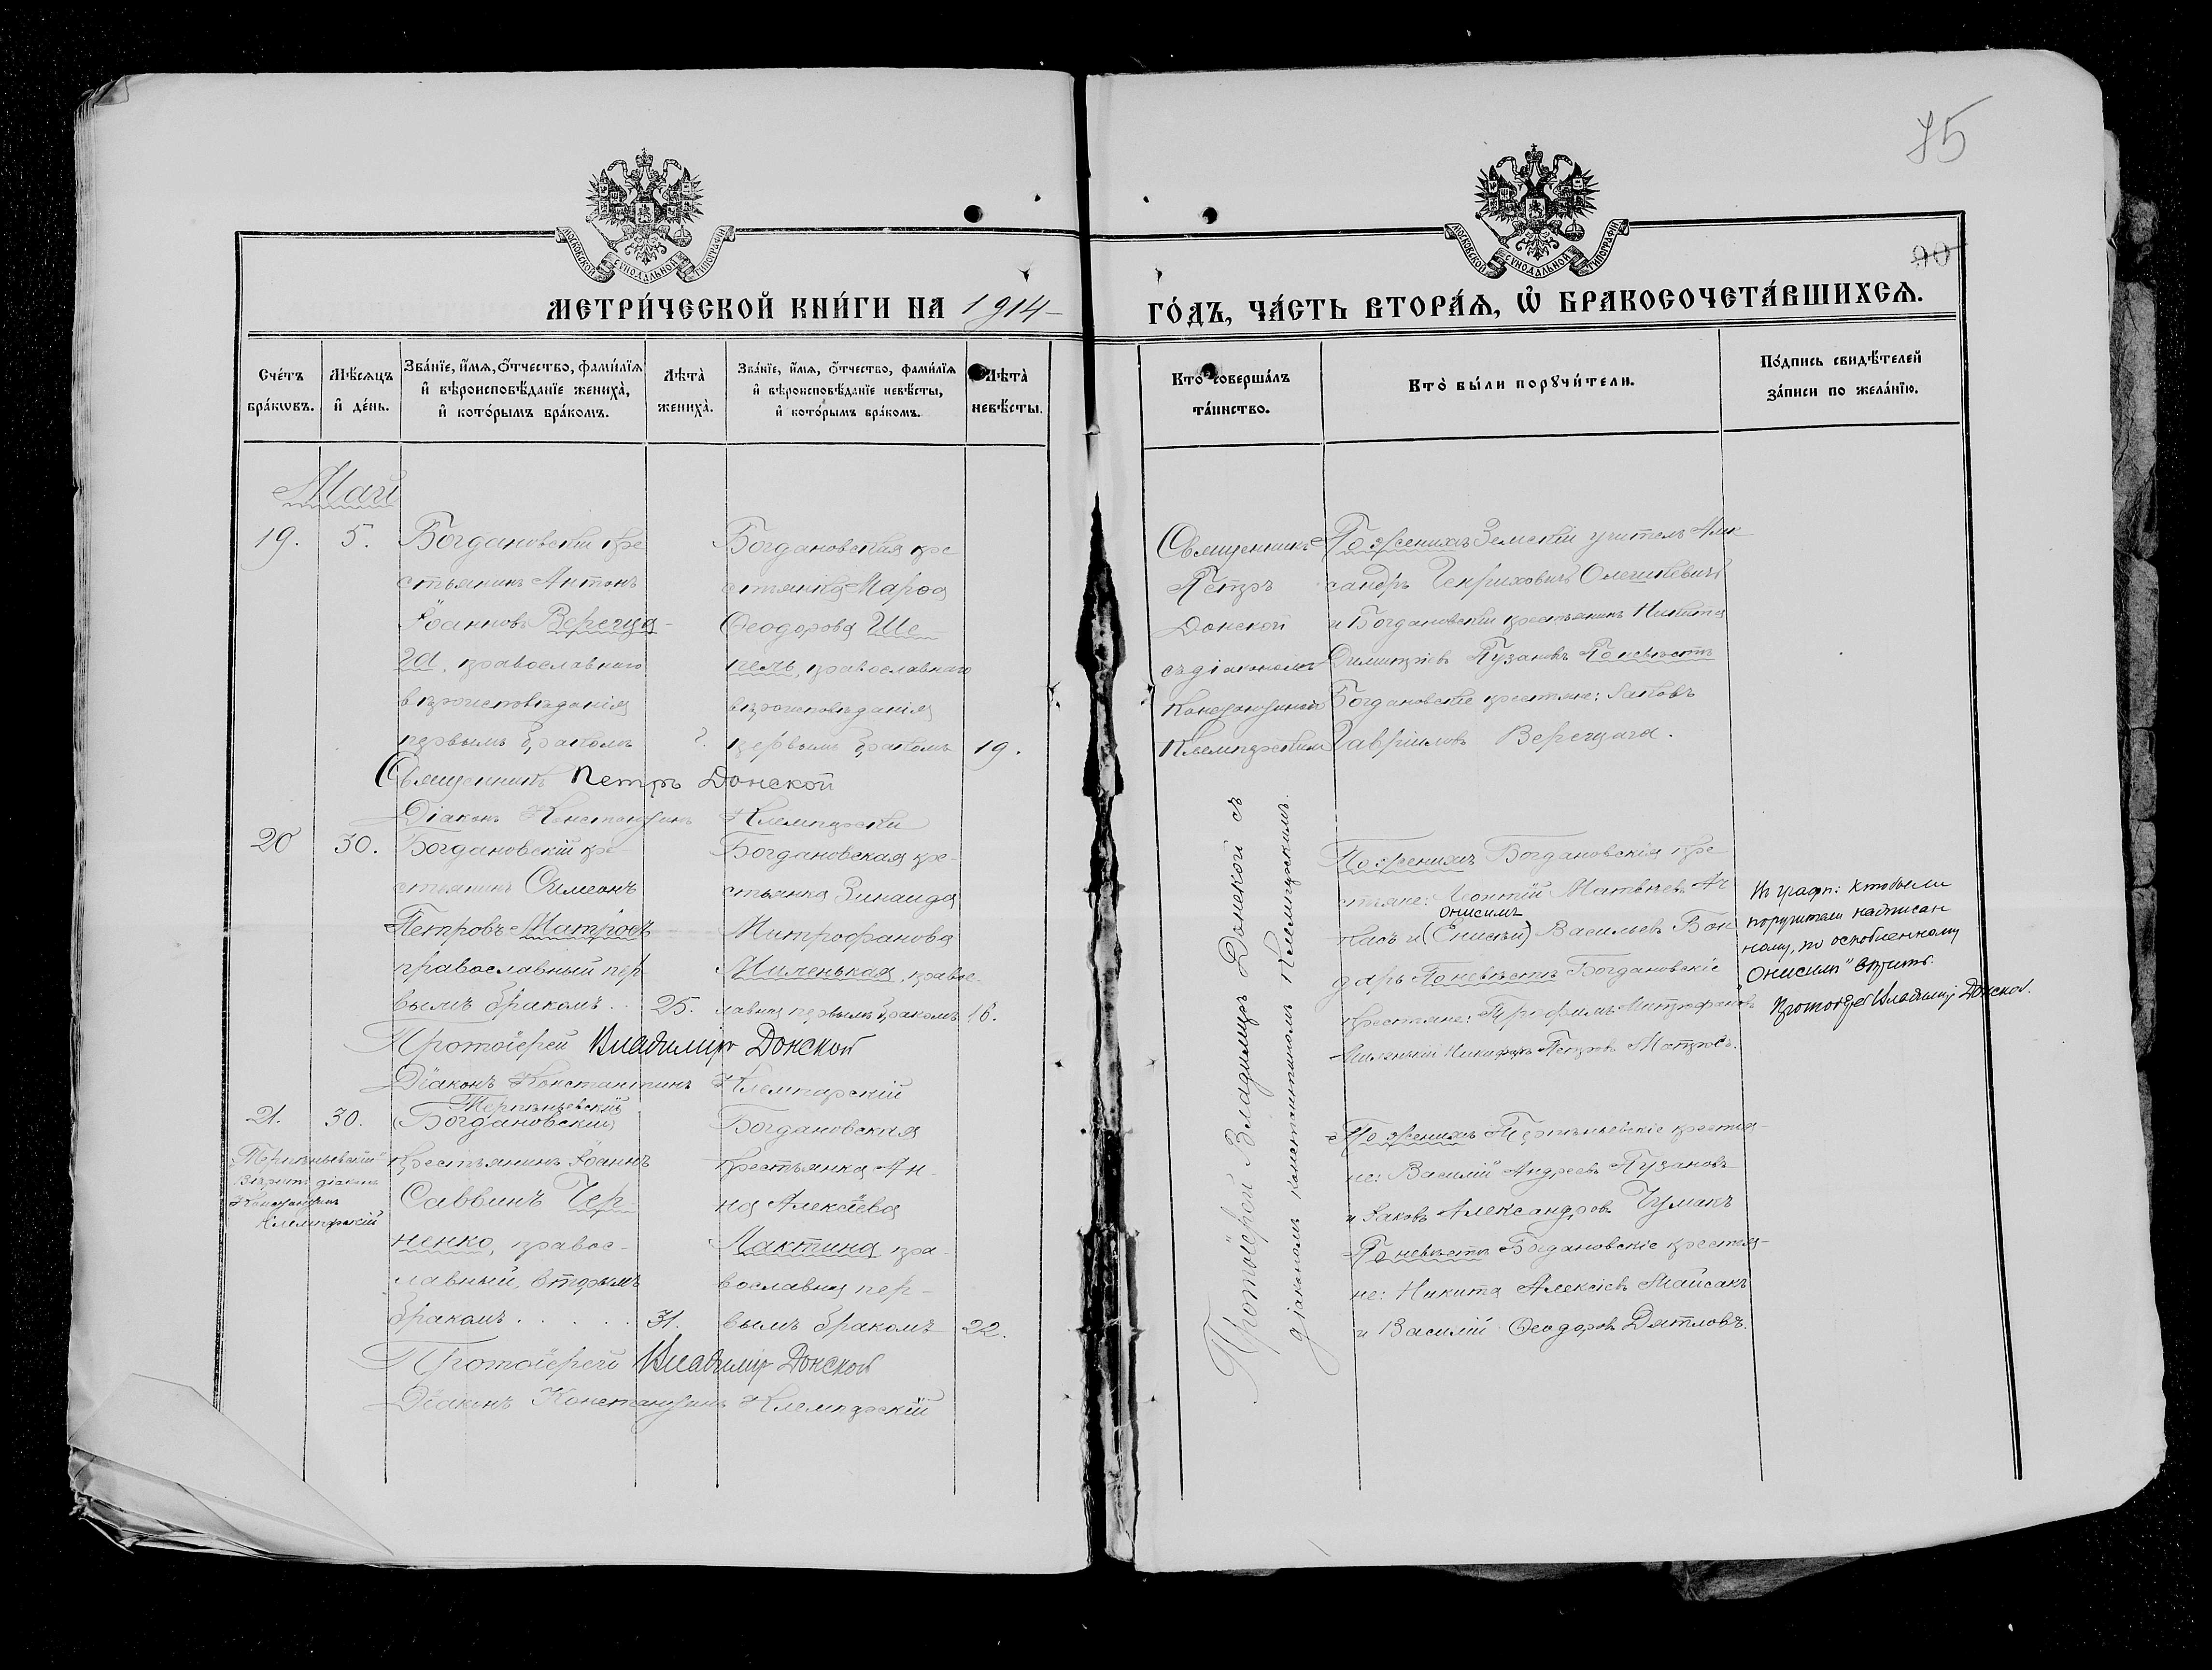 75
90
МОСКОВСКОЙ СѴНОДАЛЬНОЙ ТИПОГРАФІИ
МЕТРИ́ЧЕСКОЙ КНИ́ГИ НА 1914
МОСКОВСКОЙ СѴНОДАЛЬНОЙ ТИПОГРАФІИ
ГО́ДЪ, ЧА́СТЬ ВТОРА́Ѧ, Ѡ҆ БРАКОСОЧЕТА́ВШИХСѦ.
Сче́тъ
бра́кѡвъ.
Мѣ́сѧцъ
и҆ де́нь.
Зва́нїе, и҆́мѧ, ѻ҆́тчество, фами́лїѧ
и҆ вѣроисповѣ́данїе жениха̀,
и҆ кото́рымъ бра́комъ.
Лѣ́та̀
жениха̀.
Зва́нїе, и҆́мѧ, ѻ҆́тчество, фами́лїѧ
и҆ вѣроисповѣ́данїе невѣ́сты,
и҆ кото́рымъ бра́комъ.
Лѣ́та̀
невѣ́сты.
Кто̀ соверша́лъ
та́инство.
Кто̀ бы́ли порꙋчи́тели.
По́дпись свидѣ́телей
за́писи по жела́нїю.
Май
19.
5.
Богдановскій кре
стьянинъ Антонъ
Іоанновъ Вереща-
га, православнаго
вѣроисповѣданія
первымъ бракомъ
Богдановская кре
стьянка Марѳа
Ѳеодорова Ше-
пель, православнаго
вѣроисповѣданія
первымъ бракомъ
19.
Священникъ
Петръ
Донской
съ діакономъ
Константиномъ
По женихѣ Земскій учитель Алек
сандръ Генриховичъ Олешкевичъ
и Богдановскій крестьянинъ Никита
Димитріевъ Пузановъ По невѣстѣ
Богдановскіе крестьяне: Іаковъ
Гавріиловъ Верещага.
Священникъ Петръ Донской
Діаконъ Константинъ
20
30.
Богдановскій кре-
стьянинъ Симеонъ
Петровъ Матросъ
православный пер-
вымъ бракомъ. .
25.
Богдановская кре-
стьянка Зинаида
Митрофанова
Миленькая, правос-
лавная первымъ бракомъ
Протоіерей Владиміръ Донской съ
діакономъ Константиномъ
По женихѣ Богдановскіе кре
стьяне: Леонтій Матвѣевъ
Онисимъ
Васильевъ Бон
дарь По невѣстѣ Богдановскіе
крестьяне: Трофимъ Митрофановъ
Миленькій Никифоръ Петровъ Матросъ.
Въ графѣ: Кто были
поручители надписан
ному, по оскобленному
"Онисимъ" вѣрить.
Протоіерей Владиміръ Донской.
Протоіерей Владиміръ Донской
Діаконъ Константинъ
21.
30.
Терпѣньевскій
(Богдановскій)
крестьянинъ Іоаннъ
Саввинъ Чер-
ненко, правос-
лавный, вторымъ
бракомъ . . . . .
31.
"Терпѣньевскій"
вѣрить діаконъ
Константинъ
Богдановская
крестьянка Ан-
на Алексіева
Лактина пра-
вославная пер-
вымъ бракомъ
22.
По женихѣ Терпѣньевскіе крестья-
не: Василій Андреевъ Пузановъ
и Іаковъ Александровъ Чумакъ
По невѣстѣ Богдановскіе крестья-
не: Никита Алексіевъ Майсакъ
и Василій Ѳеодоровъ Дятловъ.
Протоіерей Владиміръ Донской
Діаконъ Константинъ